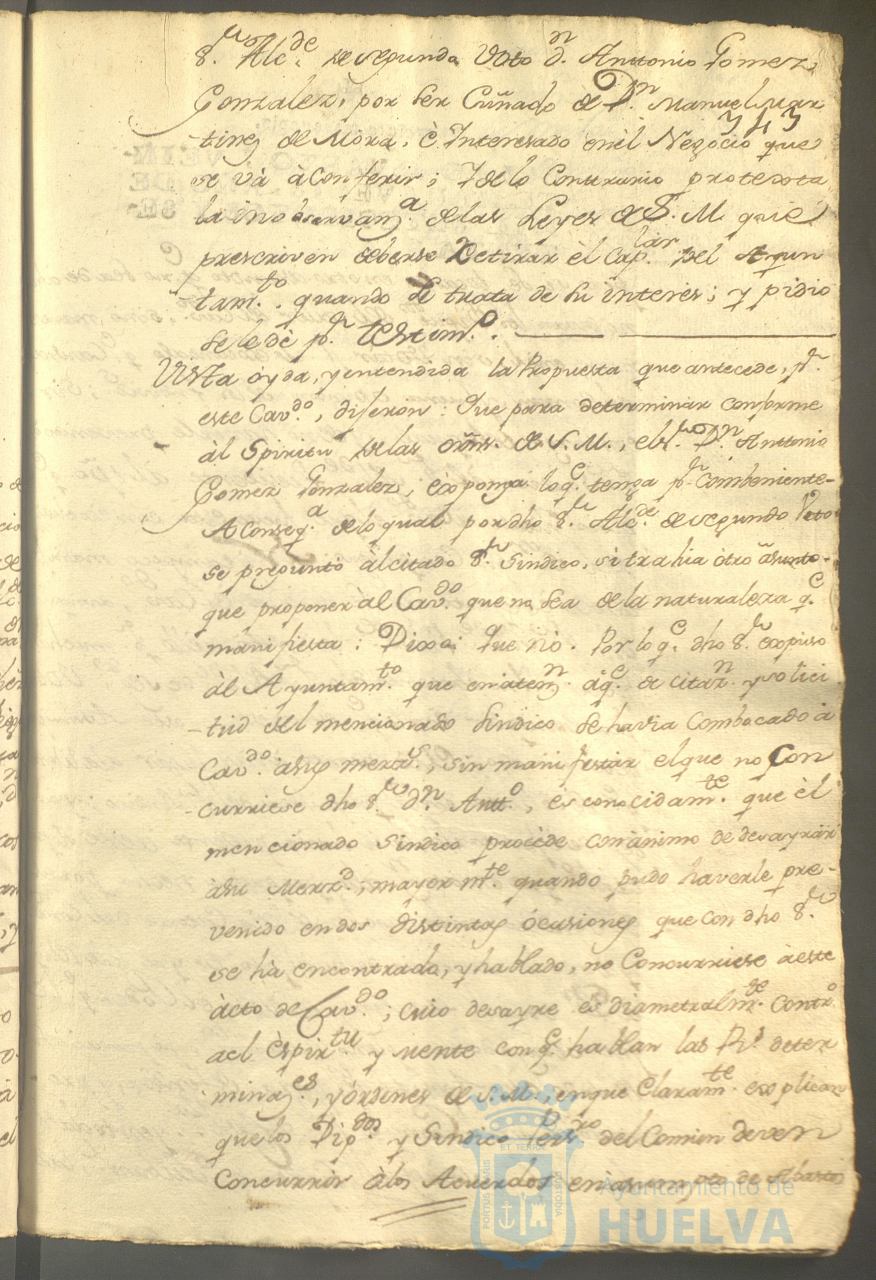 S.r Alc.de de segundo Voto d.n Anttonio Gomez
Gonzalez, por ser Cuñado de D.n Manuel Mar
343
-tinez de Mora, è Interesado en èl Negocio que
se và à conferir; Y de lo Contrario protexta
la inobservanz.a de las Leyes de S. M. que
prescriven deberse Retirar èl Cap.lar del Ayun
tam.to quando se trata de su interes; y pidio
se le dè p.r Testim.o
Vista oyda, y entendida la Propuesta que antecede, p.r
este Cav.do, dijeron: Que para determinar conforme
àl Spiritu de las orns. de S. M., el s.r D.n Anttonio
Gomez Gonzalez, exponga lo q.e tenga p.r combeniente-
A conseq.a de lo qual por dho S.r Alc.de de segundo Voto
se preguntò àl citado S.r Sindico, si trahia otro asunto
que proponer àl Cav.do que no sea de la naturaleza q.e
manifiesta: Dixo: Que no. Por lo q.e dho S.r expuso
àl Ayuntam.to que en aten.n à q.e à citaz.n y solici
-tud del mencionado Sindico se havia Combocado à
Cav.do à sus merzs., sin manifestar el que no Con
curriese dho S.r d.n Antt.o, es conocidam.te que èl
mencionado Sindico procède con animo de desayrar
à su Merz.d; mayorm.te quando pudo haverle pre-
venido en dos distintas òcasiones que con dho S.r
se hà encontrado, y hablado, no Concurriese à este
àcto de Cav.do; cuio desayre es diametralm.te contr.o
àl Espir.tu y mente con q.e hablan las R.s deter
minaz.es, y ordenes de S. M., en que Claram.te explican
que los Dip.dos y Sindico Pers.ro del Comun deven
Concurrir à los Acuerdos en asumpto de Abastos
Ayuntamiento de
HUELVA